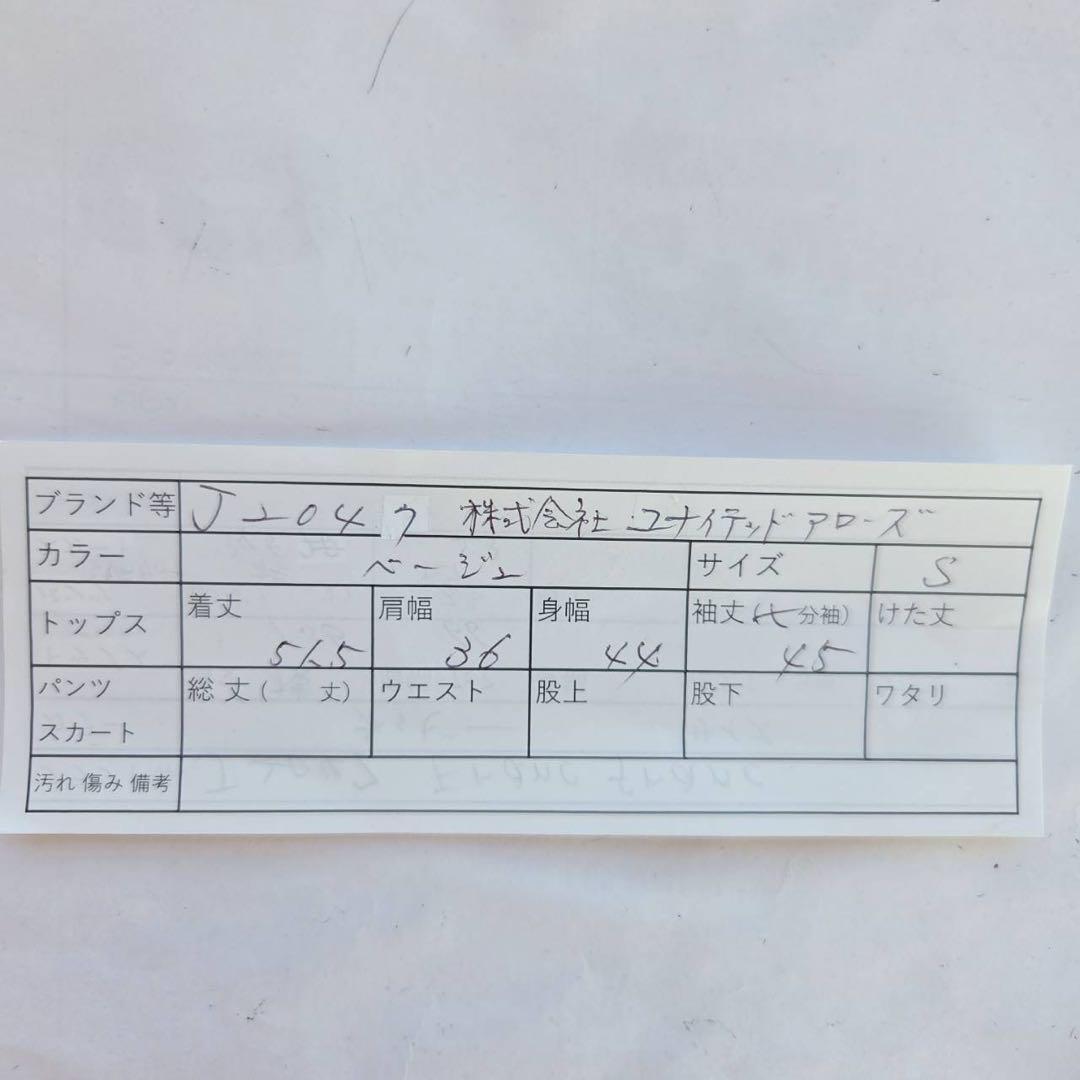 ブランド等 J2047 株式会社ユナイテッドアローズ
カラー ベージュ サイズ S
トップス 着丈 51.5 肩幅 36 身幅 44 袖丈(七分袖) 45 けた丈
パンツ スカート 総丈(　丈) ウエスト 股上 股下 ワタリ
汚れ 傷み 備考